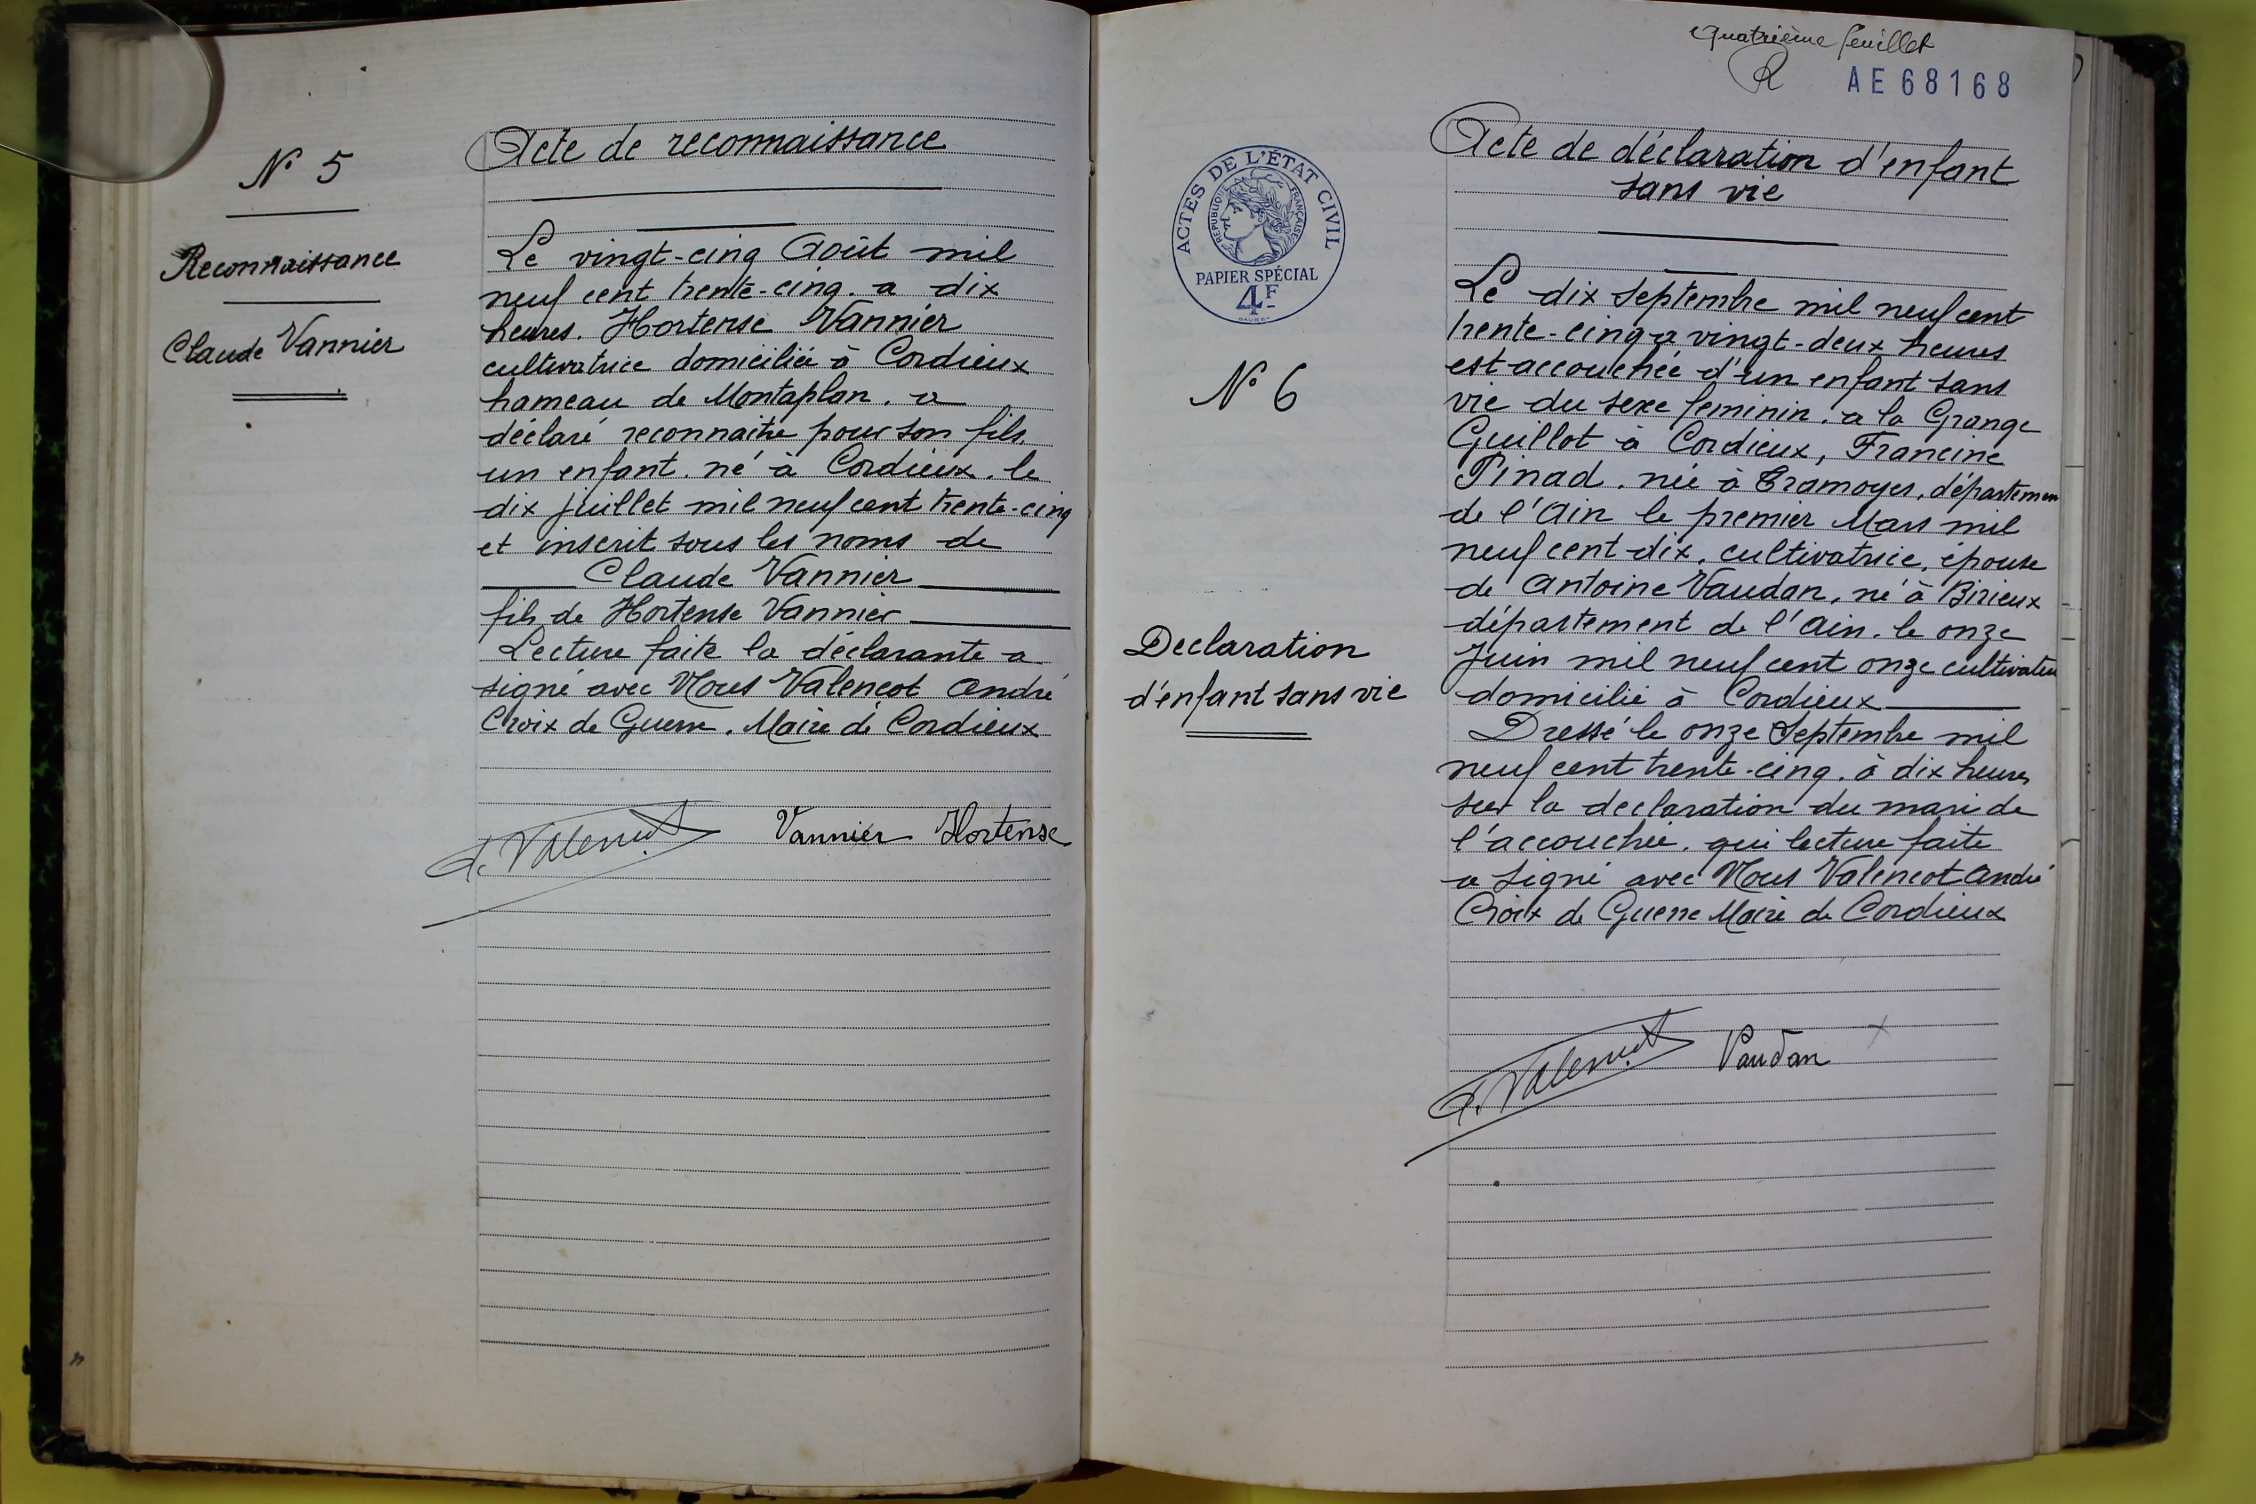 N° 5
Reconnaissance
Claude Vannier
Acte de reconnaissance
Le vingt-cinq Août mil
neuf cent trente-cinq. a dix
heures. Hortense Vannier
cultivatrice domiciliée à Cordieux
hameau de Montaplan. a
déclaré reconnaitre pour son fils
un enfant. né à Cordieux. le
dix juillet mil neuf cent trente-cinq
et inscrit sous les noms de
Claude Vannier
fils de Hortense Vannier
Lecture faite la déclarante a
signé avec Nous Valencot André
Croix de Guerre. Maire de Cordieux
A. Valencot Vannier Hortense
quatrième feuillet
AE 68168
ACTES DE L'ÉTAT CIVIL
RÉPUBLIQUE FRANÇAISE
PAPIER SPÉCIAL
4F
N° 6
Declaration
d'enfant sans vie
Acte de déclaration d'enfant
sans vie
Le dix septembre mil neuf cent
trente-cinq a vingt-deux heures
est accouchée d'un enfant sans
vie du sexe feminin. a la Grange
Guillot à Cordieux, Francine
Pinad. née à Tramoyes, départemen
de l'Ain le premier Mars mil
neuf cent-dix, cultivatrice, épouse
de Antoine Vaudan, né à Birieux
département de l'Ain. le onze
Juin mil neuf cent onze cultivateu
domicilié à Cordieux
Dressé le onze Septembre mil
neuf cent trente-cinq. à dix heures
sur la declaration du mari de
l'accouchée. qui lecture faite
a signé avec Nous Valencot André
Croix de Guerre Maire de Cordieux
A. Valencot Vaudan